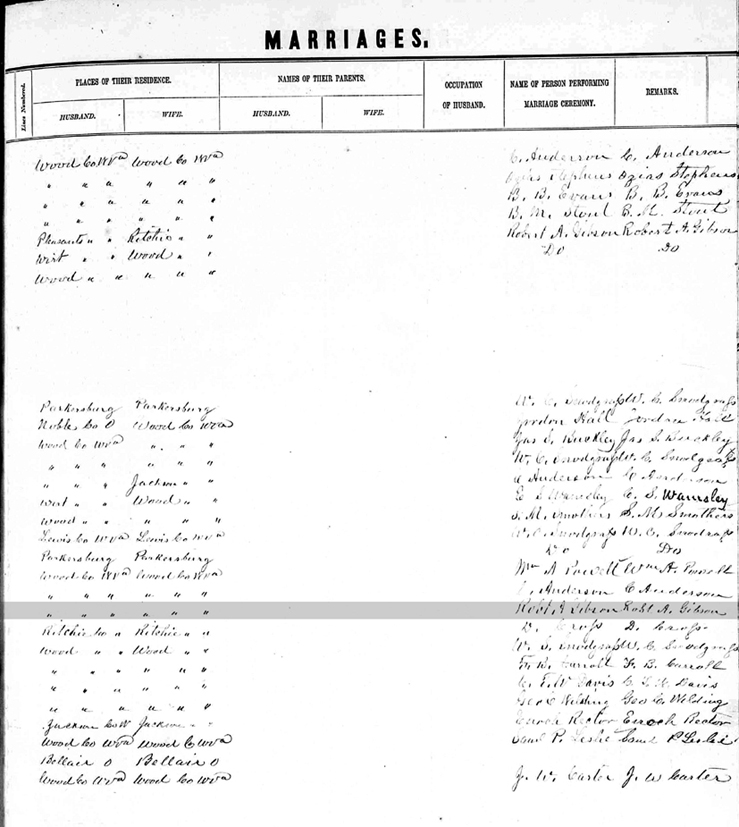 MARRIAGES.
Lines Numbered. PLACES OF THEIR RESIDENCE. NAMES OF THEIR PARENTS. OCCUPATION OF HUSBAND. NAME OF PERSON PERFORMING MARRIAGE CEREMONY. REMARKS.
HUSBAND. WIFE. HUSBAND. WIFE.
Wood Co WVa Wood Co WVa C. Anderson C. Anderson
" " " " " " Ozias Stephens Ozias Stephens
" " " " " " B. B. Evans B. B. Evans
" " " " " " B. M. Stout B. M. Stout
Pleasants " " Ritchie " " Robert A. Gibson Robert A. Gibson
Wirt " " Wood " " Do Do
Wood " " " " "
Parkersburg Parkersburg W. C. Snodgrass W. C. Snodgrass
Noble Co O Wood Co WVa Gordon Hall Gordon Hall
Wood Co WVa " " " Jas S. Buckley Jas S. Buckley
" " " " " " W. C. Snodgrass W. C. Snodgrass
" " " Jackson " " C Anderson C Anderson
Wirt " " Wood " " C. S. Wamsley C. S. Wamsley
Wood " " " " " S. M. Smothers S. M. Smothers
Lewis Co WVa Lewis Co WVa W. C. Snodgrass W. C. Snodgrass
Parkersburg Parkersburg Do Do
Wood Co WVa Wood Co WVa Wm A Powell Wm A. Powell
" " " " " " C. Anderson C Anderson
" " " " " " Robt A Gibson Robt A. Gibson
Ritchie Co " Ritchie " " D. Cross D. Cross
Wood " " Wood " " W. S. Snodgrass W. C. Snodgrass
" " " " " " F. B. Carroll F. B. Carroll
" " " " " " Davis Davis
" " " " " " Geo C Wilding Geo C. Wilding
Jackson Co W Jackson " " Enoch Rector Enoch Rector
Wood Co WVa Wood Co WVa Saml P. Leslie Saml P Leslie
Bellair O Bellair O
Wood Co WVa Wood Co WVa J. W. Carter J. W Carter